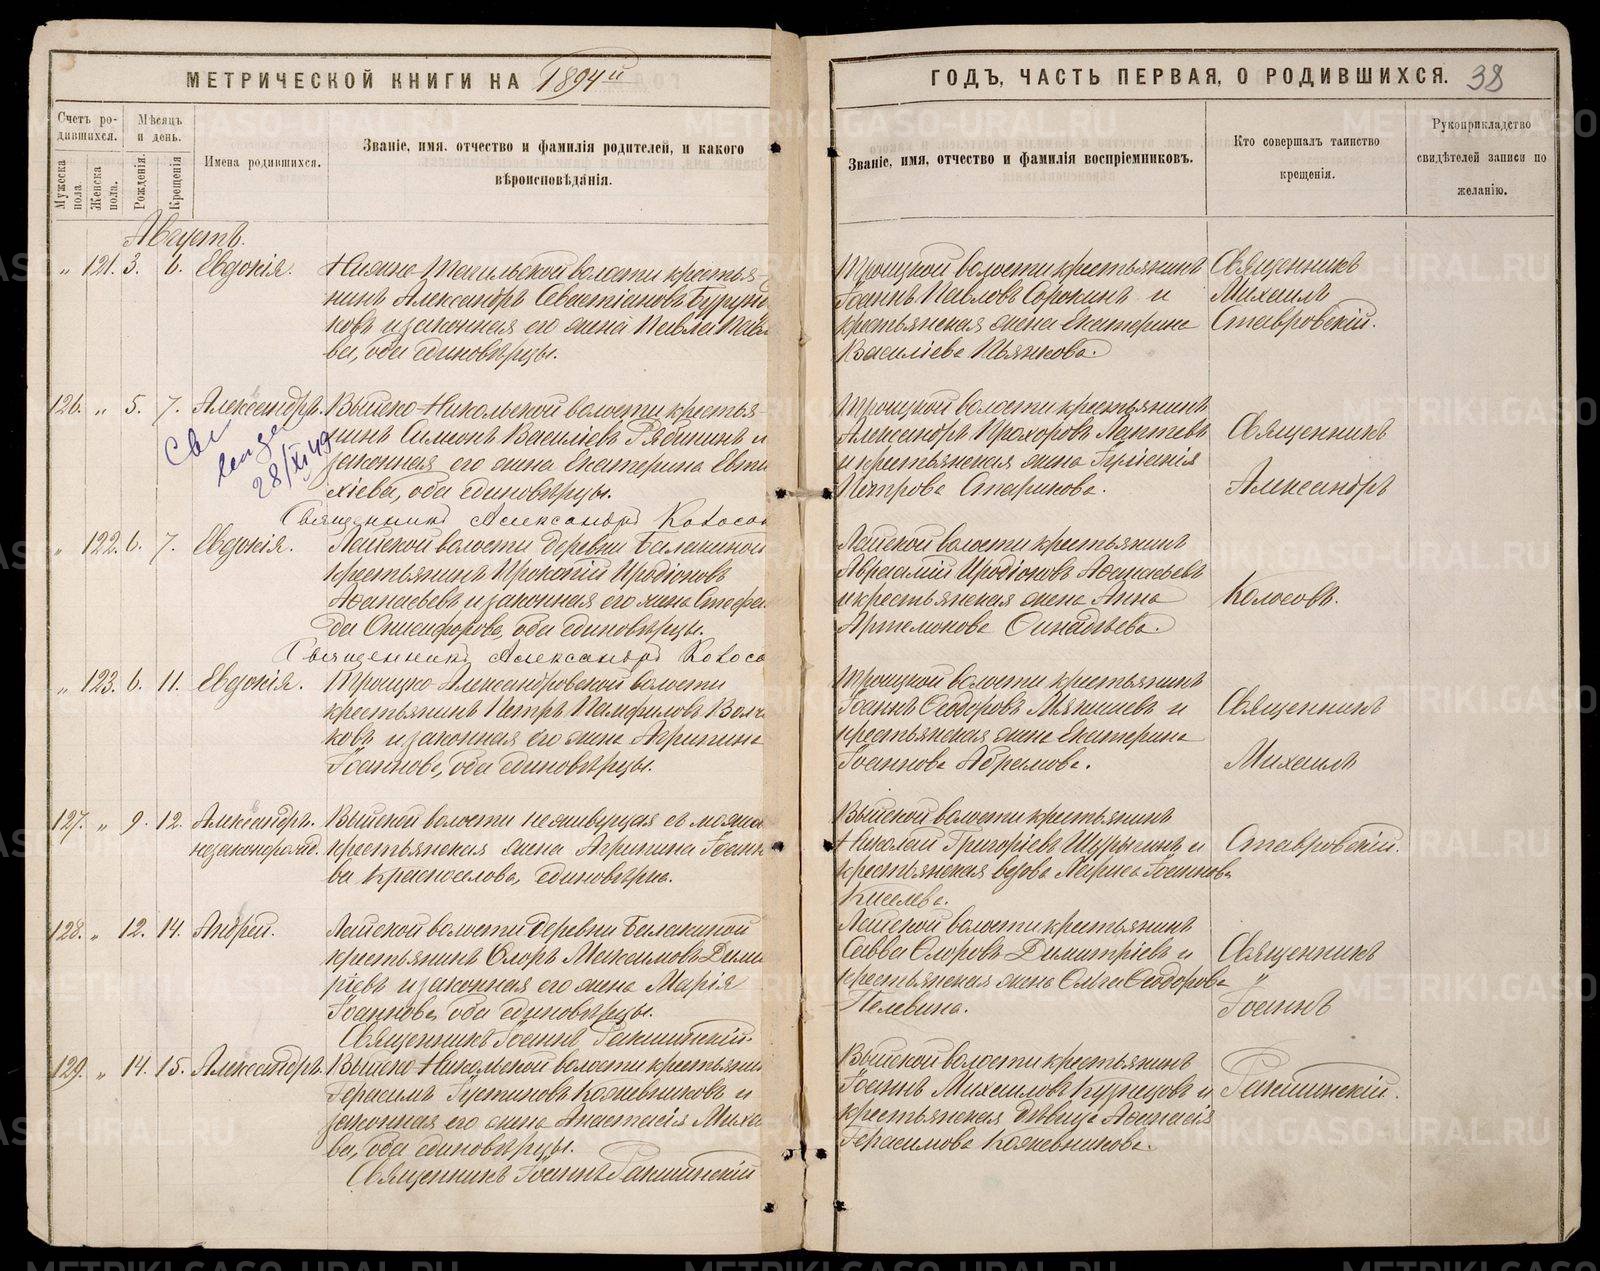 МЕТРИЧЕСКОЙ КНИГИ НА 1894й
ГОДЪ, ЧАСТЬ ПЕРВАЯ, О РОДИВШИХСЯ. 38
Счетъ родившихся.
Мужеска пола.
Женска пола.
Мѣсяцъ и день.
Рожденія.
Крещенія
Имена родившихся.
Званіе, имя, отчество и фамилія родителей, и какого
вѣроисповѣданія.
Званіе, имя, отчество и фамилія воспріемниковъ.
Кто совершалъ таинство
крещенія.
Рукоприкладство
свидѣтелей записи по
желанію.
Августъ.
„ 121. 3. 6. Евдокія.
Нижне-Тагильской волости крестья-
нинъ Александръ Севастіановъ
ковъ и законная его жена Павла
ва, оба единовѣрцы.
Троицкой волости крестьянинъ
Іоаннъ Павловъ Сорокинъ и
крестьянская жена Екатерина
Василіева Пьянкова.
Священникъ
Михаилъ
Ставровскій.
126. „ 5. 7. Александръ.
28/XI 49
Выйско-Никольской волости крестья-
нинъ Симонъ Василіевъ Рябининъ и
законная его жена Екатерина Евти
хіева, оба единовѣрцы.
Священникъ Александръ Колосов
Троицкой волости крестьянинъ
Александръ Прохоровъ Лаптевъ
и крестьянская жена
Петрова Старикова.
Священникъ
Александръ
„ 122. 6. 7. Евдокія.
Лайской волости деревни Балакиной
крестьянинъ Прокопій Иродіоновъ
Аѳанасьевъ и законная его жина Стефа
да Онисифорова, оба единовѣрцы.
Священникъ Александръ Колосо
Лайской волости крестьянинъ
Авраамій Иродіоновъ Аѳанасьевъ
и крестьянская жена Анна
Артемонова
Колосовъ.
„ 123. 6. 11. Евдокія.
Троицко-Александровской волости
крестьянинъ Петръ Памфиловъ Волч
ковъ и законная его жена Агрипина
Іоаннова, оба единовѣрцы.
Троицкой волости крестьянинъ
Іоаннъ Ѳеодоровъ Мякишевъ и
крестьянская жена Екатерина
Іоаннова Абрамова.
Священникъ
Михаилъ
127. „ 9. 12. Александръ.
незаконорожд.
Выйской волости неживущая съ мужем
крестьянская жена Агрипина Іоанн
ва Красноселова, единовѣрка.
Выйской волости крестьянинъ
Николай Григоріевъ и
крестьянская вдова Мариса Іоаннова
Киселева.
Ставровскій.
128. „ 12. 14. Андрей.
Лайской волости деревни Балакиной
крестьянинъ Флоръ Максимовъ Дими
ріевъ и законная его жена Марія
Іоаннова, оба единовѣрцы.
Священникъ Іоаннъ Ракшинскій.
Лайской волости крестьянинъ
Савва Флоровъ Димитріевъ и
крестьянская жена Ольга Ѳеодорова
Пелевина.
Священникъ
Іоаннъ
129. „ 14. 15. Александръ.
Выйско-Никольской волости крестьянин
Герасимъ Іустиновъ Кожевниковъ и
законная его жена Анастасія Миха
ва, оба единовѣрцы.
Священникъ Іоаннъ Ракшинскій
Выйской волости крестьянинъ
Іоаннъ Михаиловъ Кузнецовъ и
крестьянская дѣвица Аѳанасія
Герасимова Кожевникова.
Ракшинскій.
METRIKI.GASO-URAL.RU